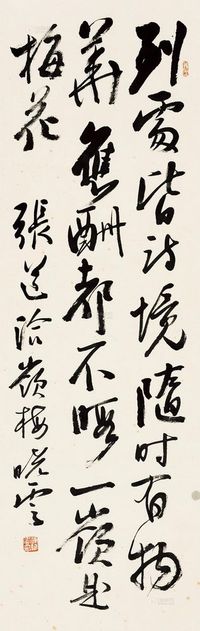 到處皆詩境隨时有物
華應酬都不暇一嶺是
梅花 張道洽嶺梅 曉雲